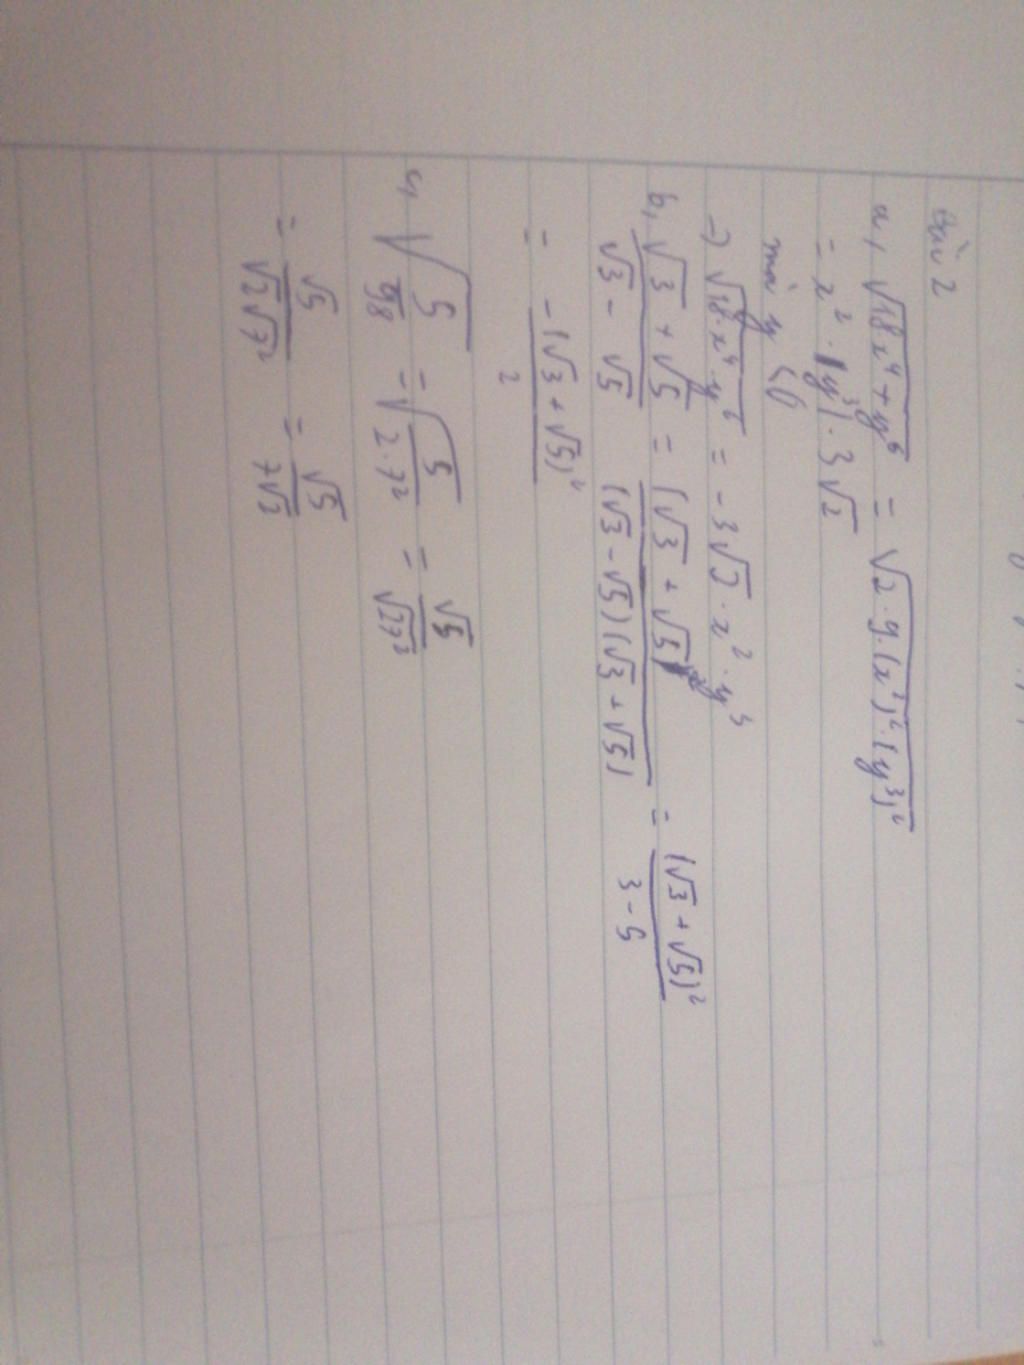 Bài 2
a, √(18x⁴+y⁶) = √(2.9.(x²)².(y³)²)
= x².|y³|.3√2
mà y <0
=> √(18.x⁴.y⁶) = -3√2.x².y³
b, (√3 + √5)/(√3 - √5) = (√3 + √5)/((√3 - √5)(√3 + √5)) = (√3 + √5)²/(3-5)
= -(√3 + √5)²/2
√(5/98) = √(5/(2.7²)) = √5/√(27²)
= √5/(√2√7²) = √5/(7√2)